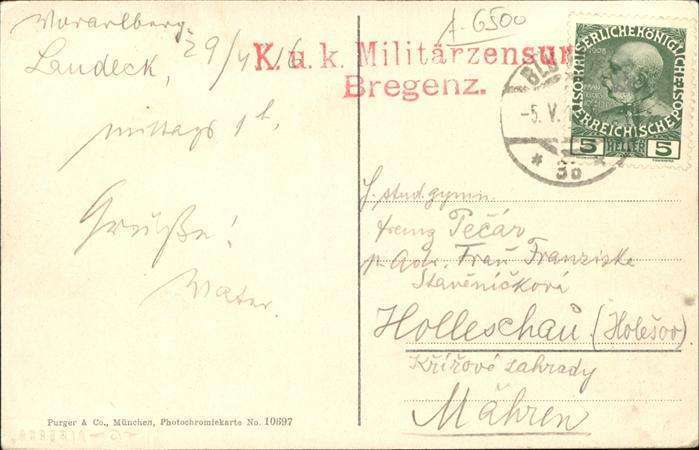 A. 6500
Vorarlberg.
Landeck, 29/4 16
mittags 1h,
Grüße!
Vater.
K. u. k. Militärzensur
Bregenz.
BLU
-5. V.
* 3b *
KAISERLICHE KÖNIGLICHE
ÖSTERREICHISCHE POST
1908
5 HELLER 5
H. stud. gymn.
Franz Pečár
p. Adr. Frau Franziska
Stavěníčková
Holleschau (Holešov)
Křížové zahrady
Mähren
Purger & Co., München, Photochromiekarte No. 10697